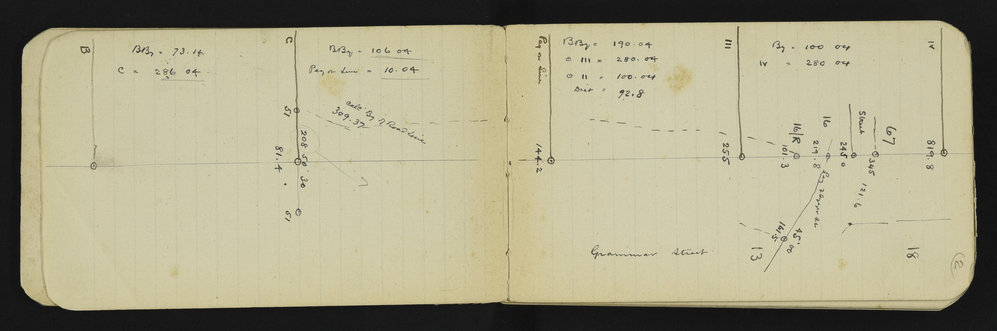 B
BBy = 73.14
C = 286 04
C
BBy = 106 04
Peg on Line = 10.04
calc By of Road Line
309.37
51
208 50 30
81.4
51
Peg on Line
BBy = 190.04
⊙ III = 280.04
⊙ II = 100.04
Dist = 92.8
144.2
III
By = 100 04
IV = 280 04
IV
255
16/R
101.3
16
219.8
Street
245.0
67
345
121.6
819.8
45° 00
161.5
13
18
Grammar Street
2